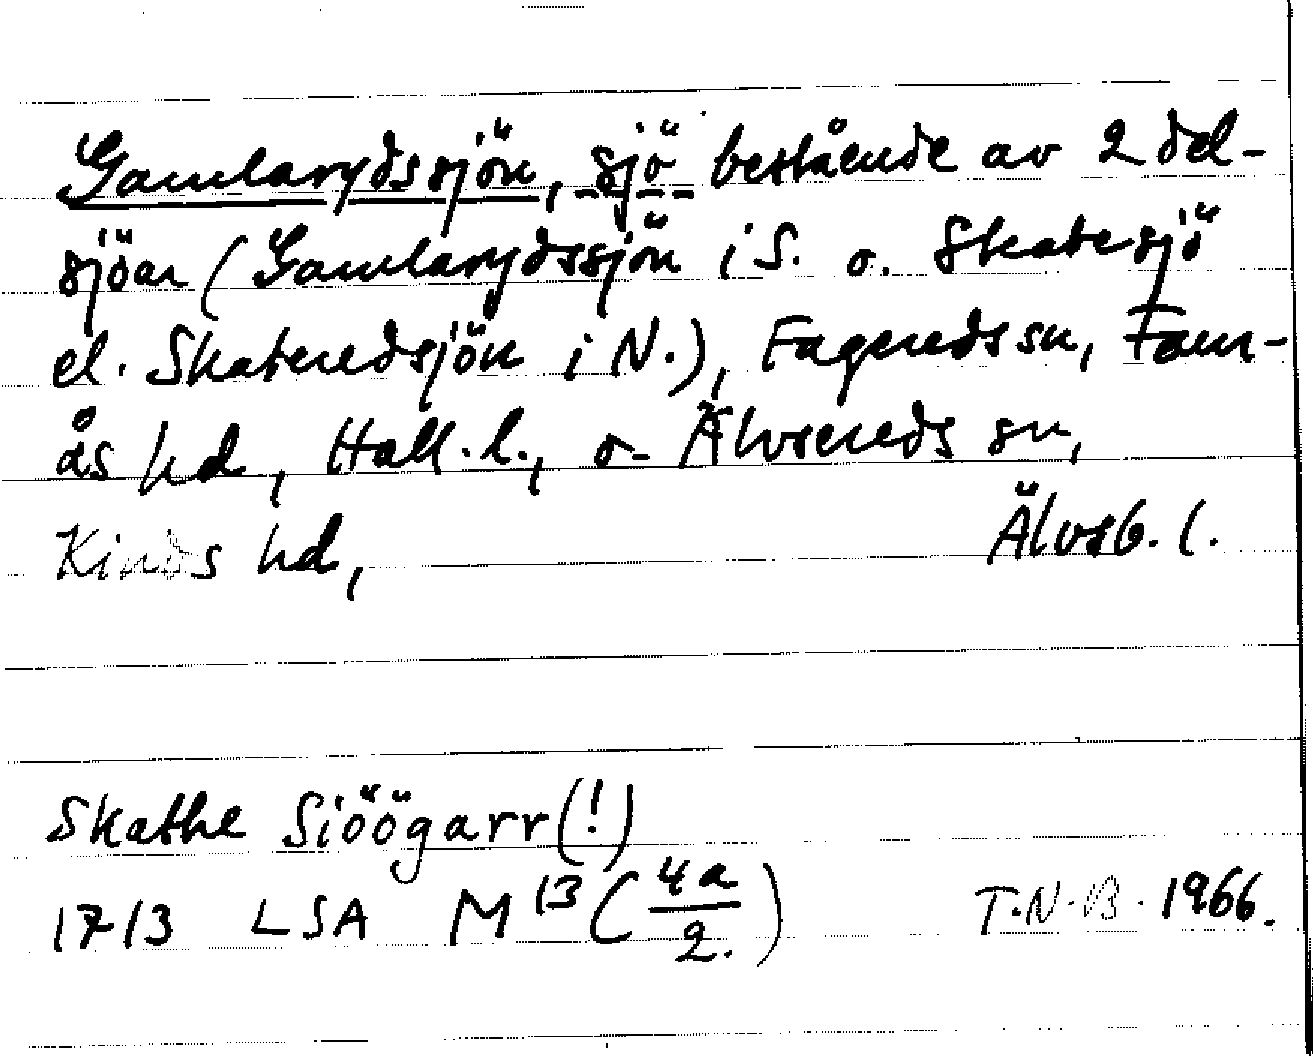 Gamlarydssjön, sjö bestående av 2 del-
sjöar (Gamlarydssjön i S. o. Skatesjö
el. Skateredsjön i N.), Fagereds sn, Faur-
ås hd, Hall. l., o. Älvsereds sn,
Kinds hd, Älvsb. l.
Skathe Siöögarr (!)
1713 LSA M 13 (4a/2.) T.N.B. 1966.